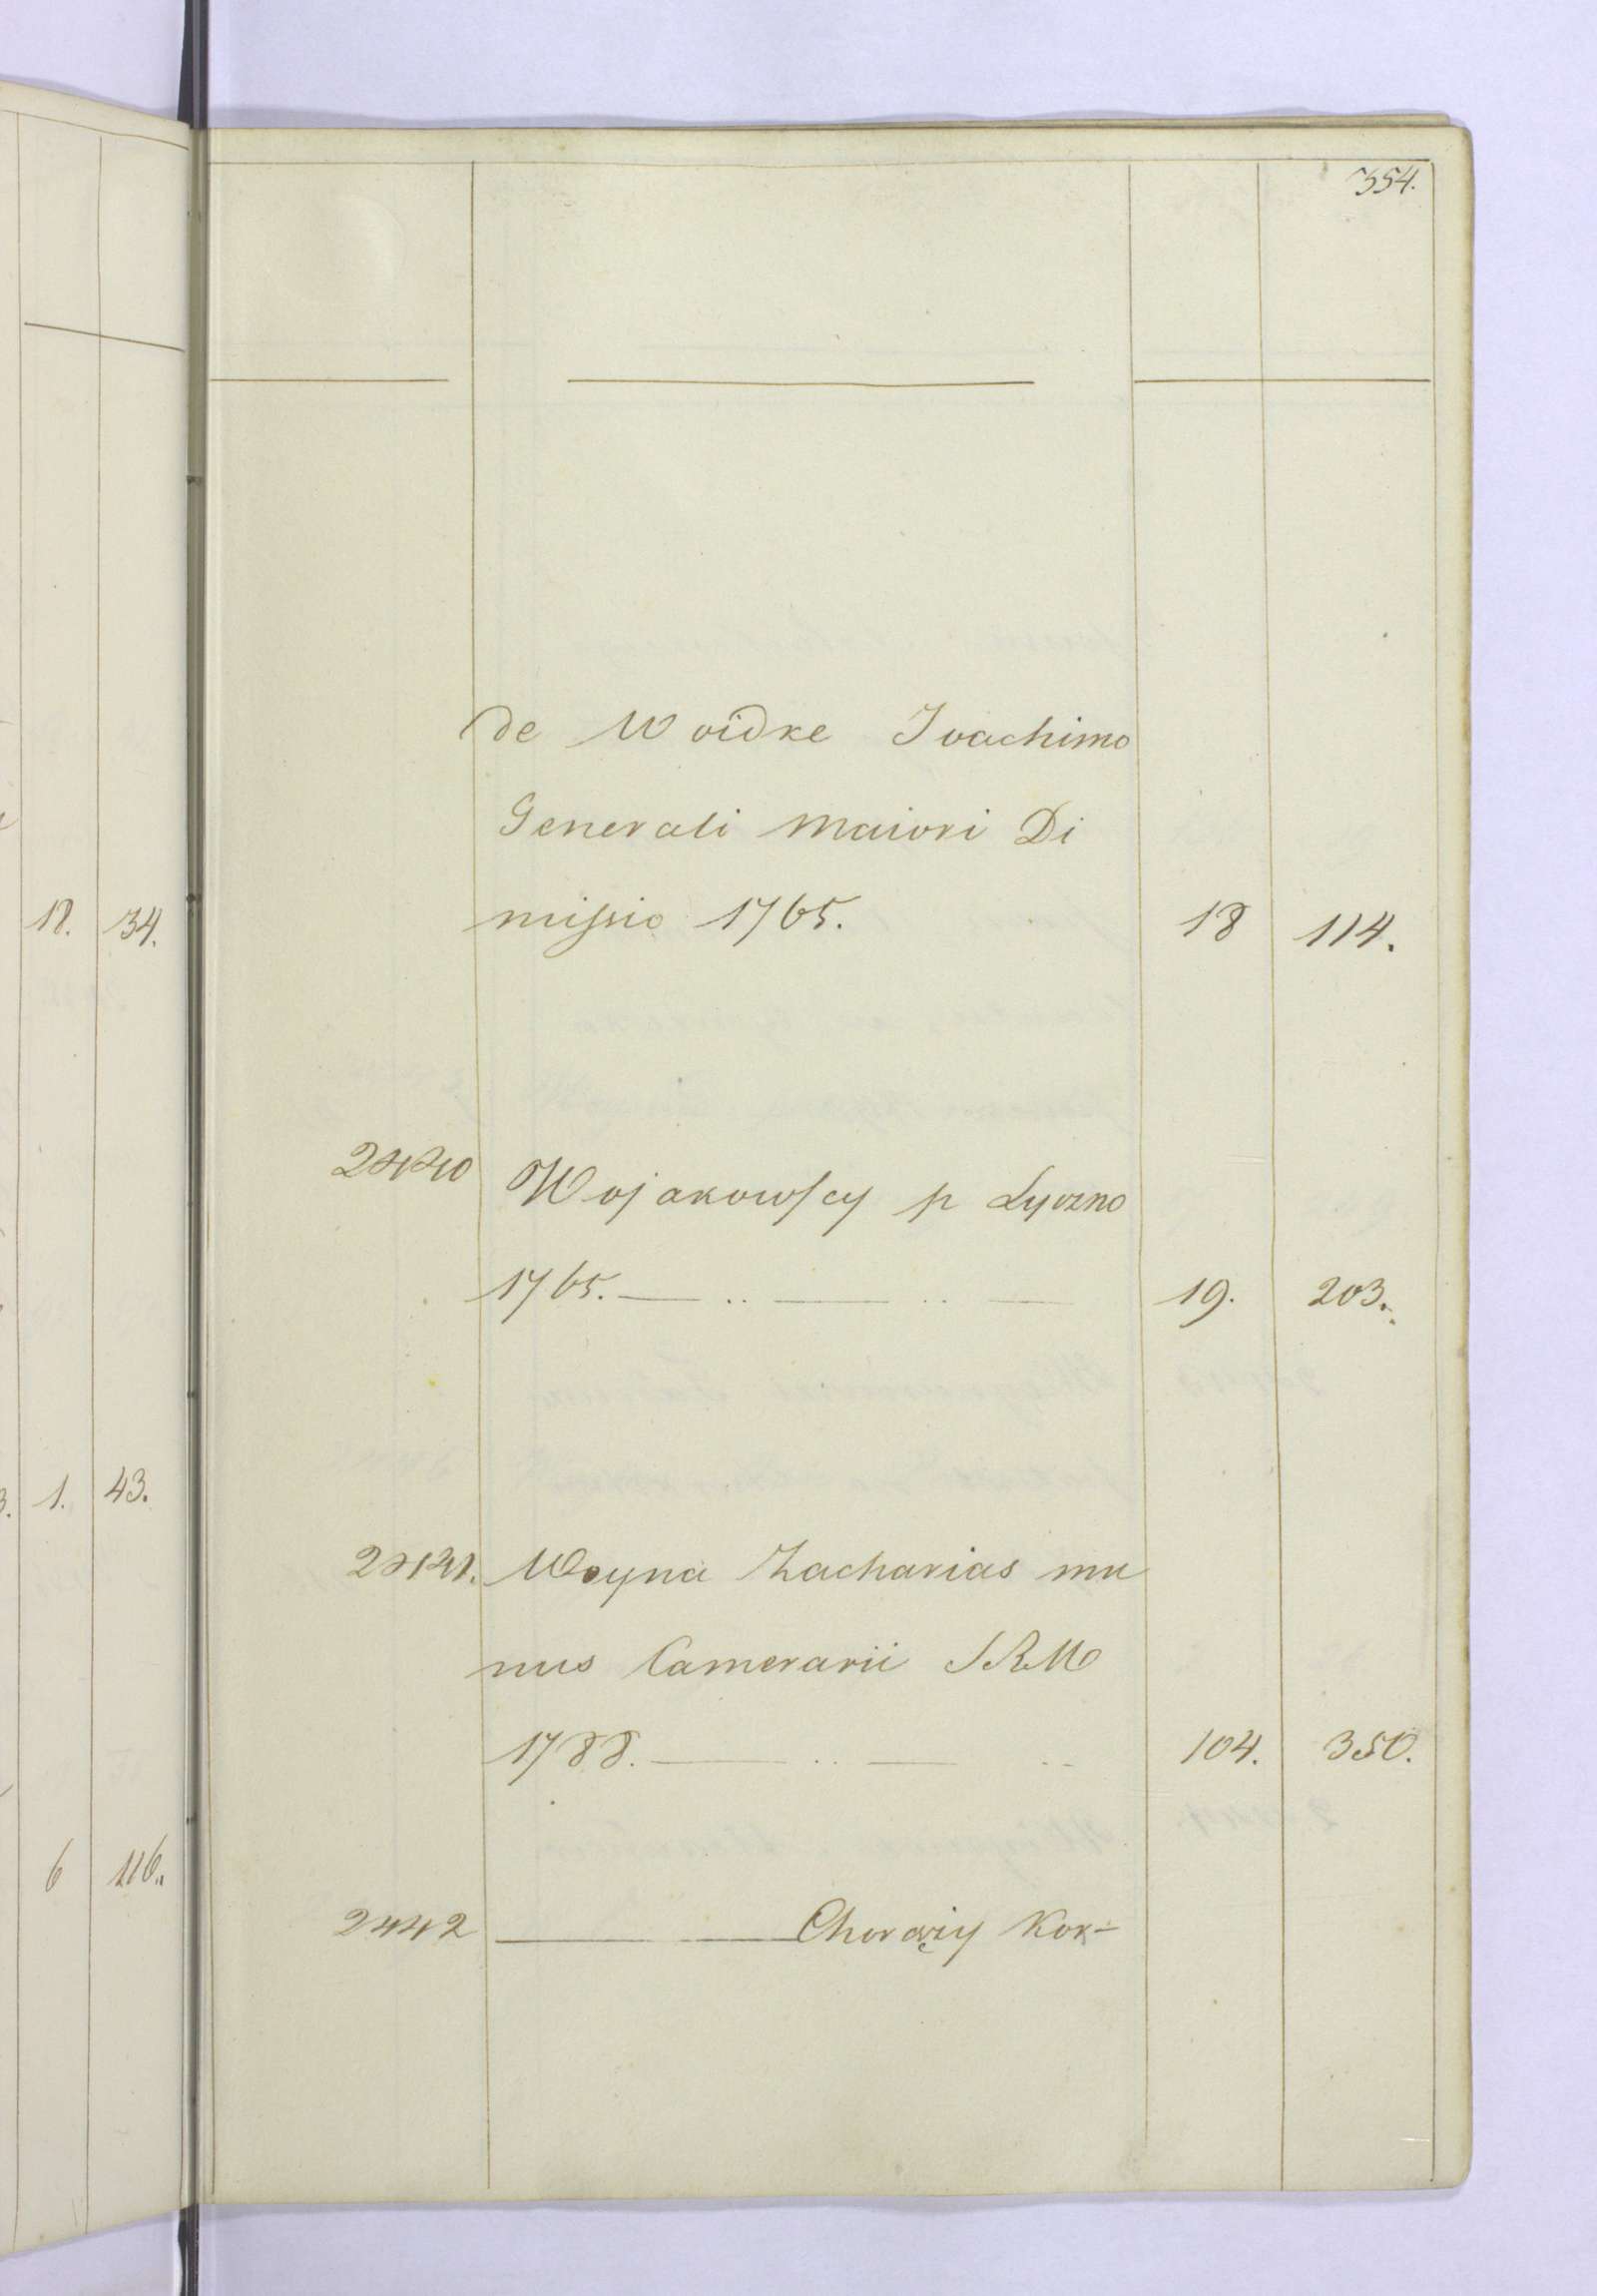 354.
de Woidke Joachimo
Generali Maiori Di
missio 1765. 18 114.
2440 Wojakowscy p Łyczno
1765. — .. — .. — 19. 203.
2441. Woyna Zacharias mu
nus Camerarii SRM
1788. — .. — .. 104. 350.
2442 — — Chorąży Kor-
18. 34.
1. 43.
6 116.